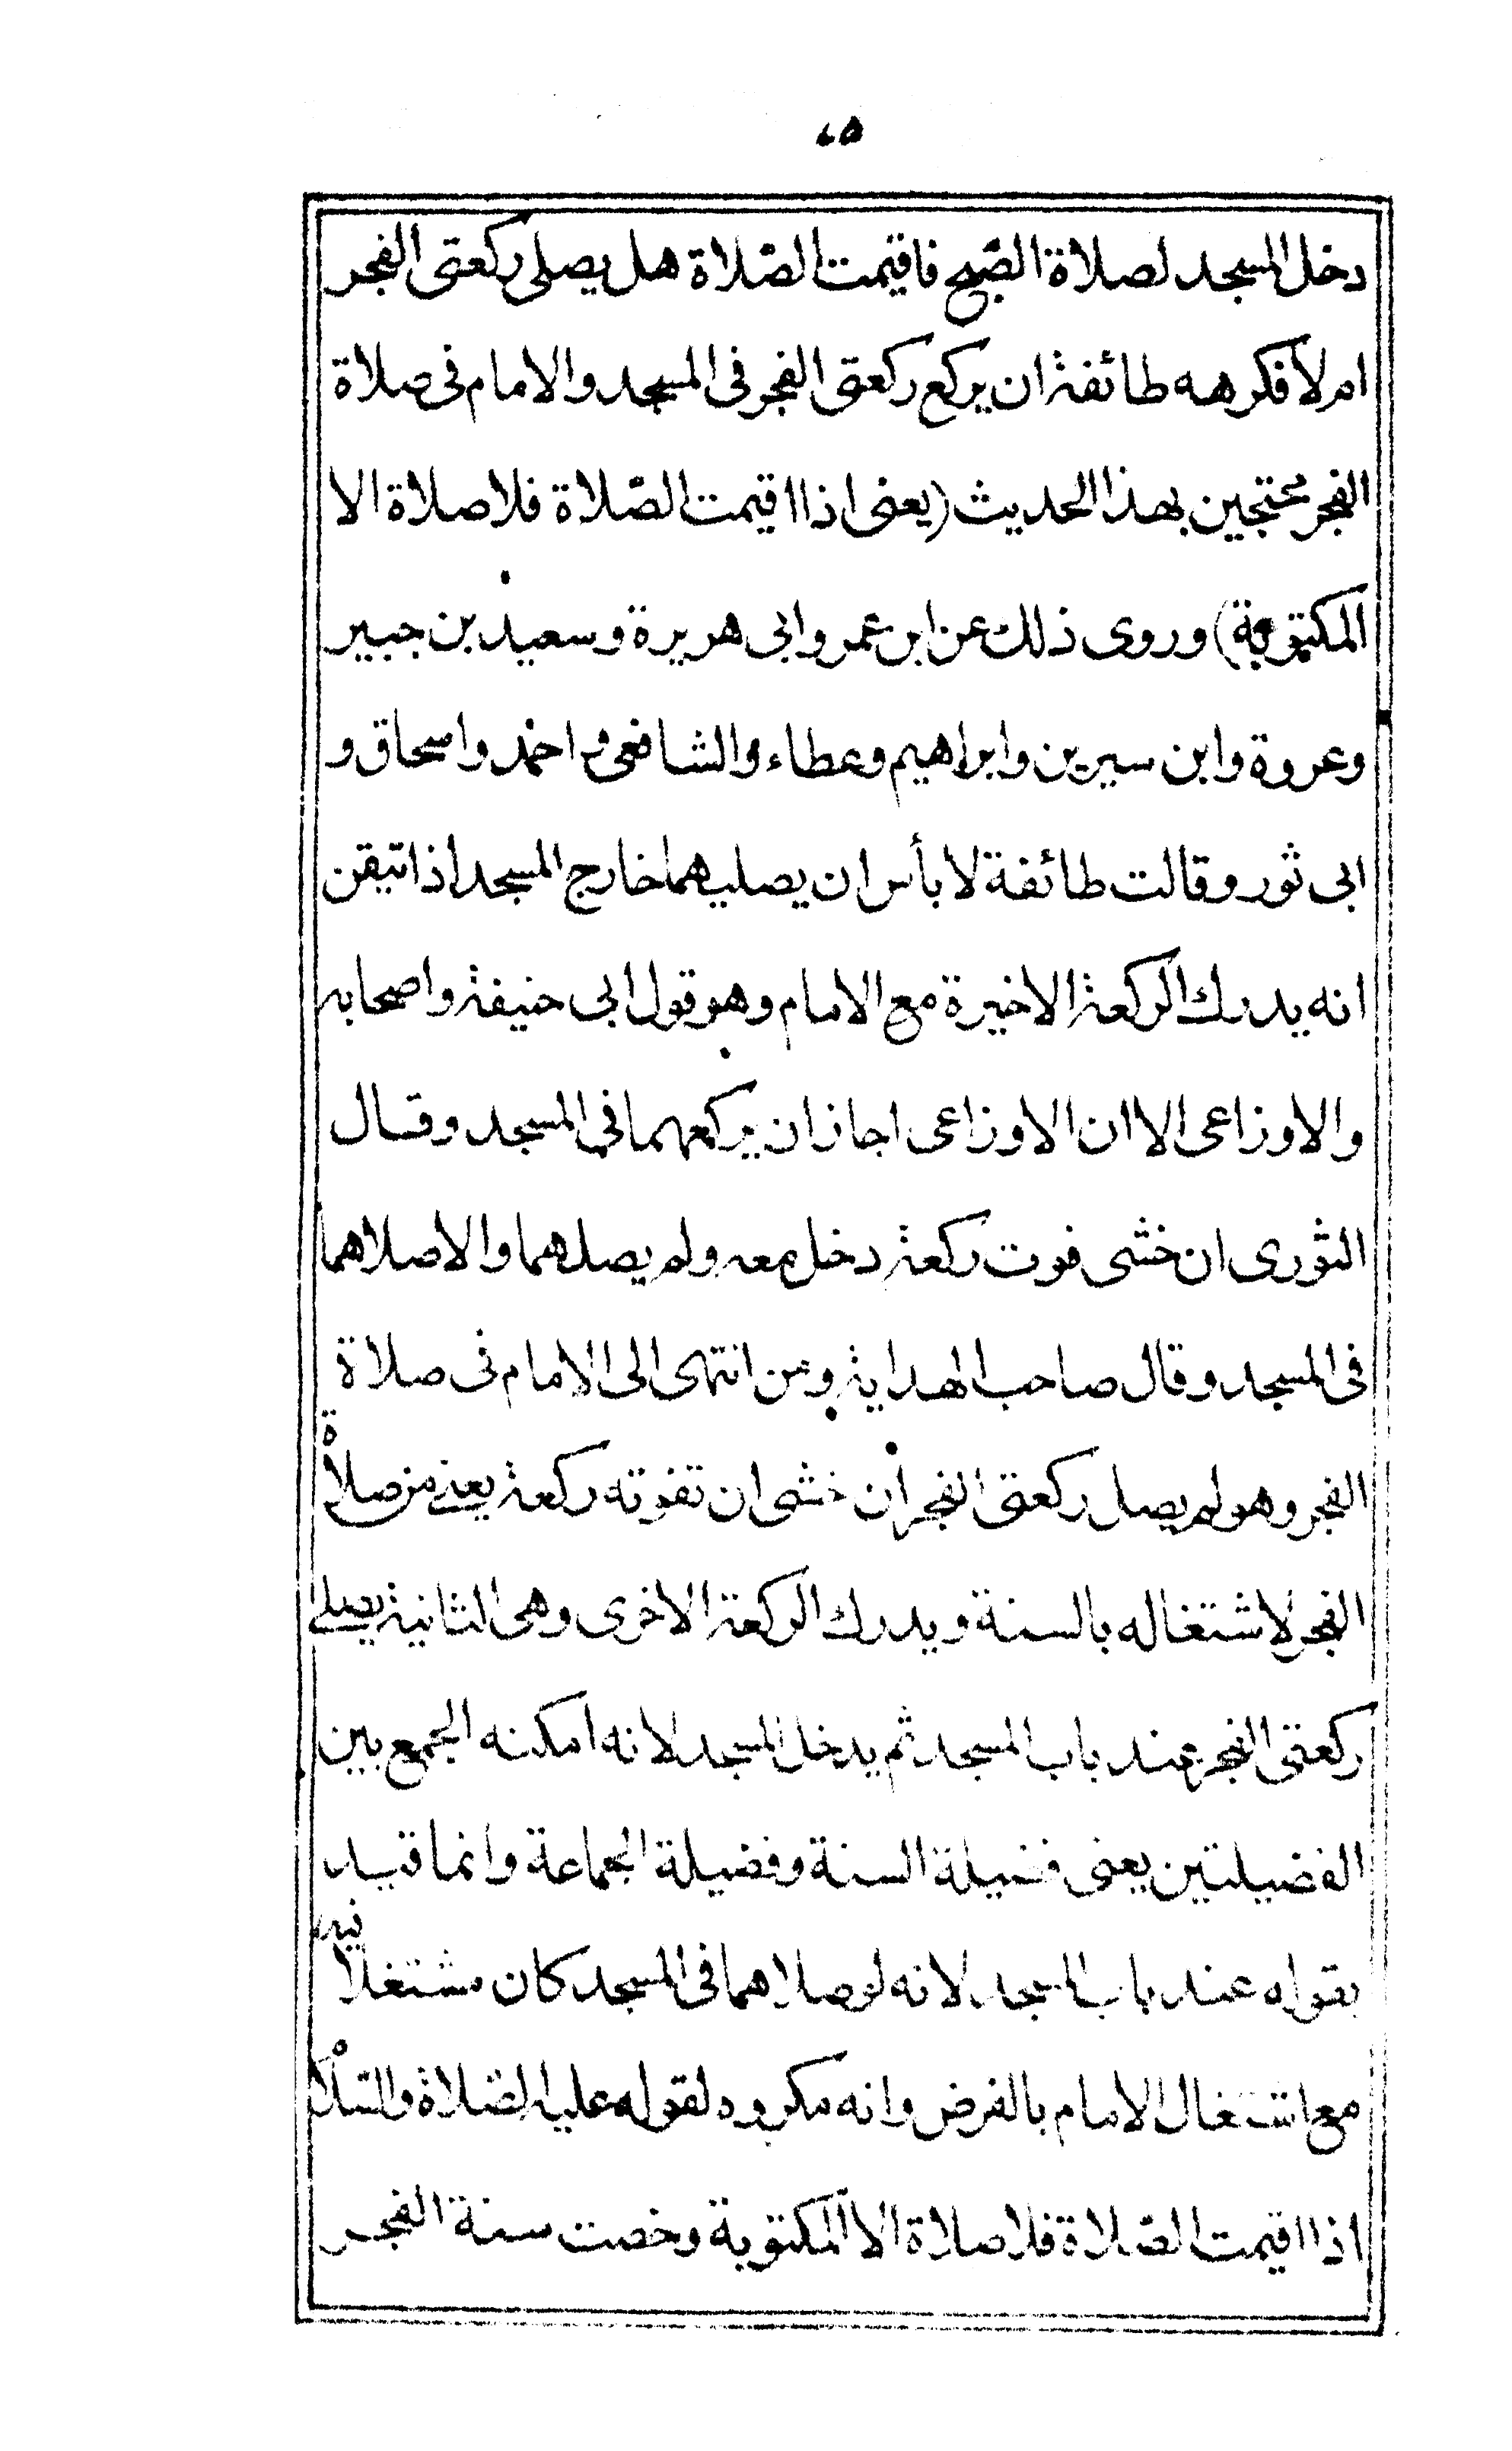 ٤٥
دخل المسجد لصلاة الصّبح فاقيمت الصّلاة هل يصلى ركعتى الفجر
ام لا فكرهه طائفة ان يركع ركعتى الفجر فى المسجد والامام فى صلاة
الفجر محتجين بهذا الحديث (يعنى اذا اقيمت الصّلاة فلا صلاة الا
المكتوبة) وروى ذلك عن ابن عمر وابى هريرة وسعيد بن جبير
وعروة وابن سيرين وابراهيم وعطاء والشافعى واحمد واسحاق و
ابى ثور وقالت طائفة لا بأس ان يصليهما خارج المسجد اذا تيقن
انه يدرك الركعة الاخيرة مع الامام وهو قول ابى حنيفة واصحابه
والاوزاعى الا ان الاوزاعى اجاز ان يركعهما فى المسجد وقال
الثورى ان خشى فوت ركعة دخل معه ولم يصلهما والا صلاهما
فى المسجد وقال صاحب الهداية ومن انتهى الى الامام فى صلاة
الفجر وهو لم يصل ركعتى الفجر ان خشى ان تفوته ركعة يعنى من صلاة
الفجر لاشتغاله بالسنة ويدرك الركعة الاخرى وهى الثانية يصلى
ركعتى الفجر عند باب المسجد ثم يدخل المسجد لانه امكنه الجمع بين
الفضيلتين يعنى فضيلة السنة وفضيلة الجماعة وانما قيد
بقوله عند باب المسجد لانه لو صلاهما فى المسجد كان مشتغلا فيه
مع اشتغال الامام بالفرض وانه مكروه لقوله عليه الصّلاة والسّلام
اذا اقيمت الصّلاة فلا صلاة الا المكتوبة وخصت سنة الفجر